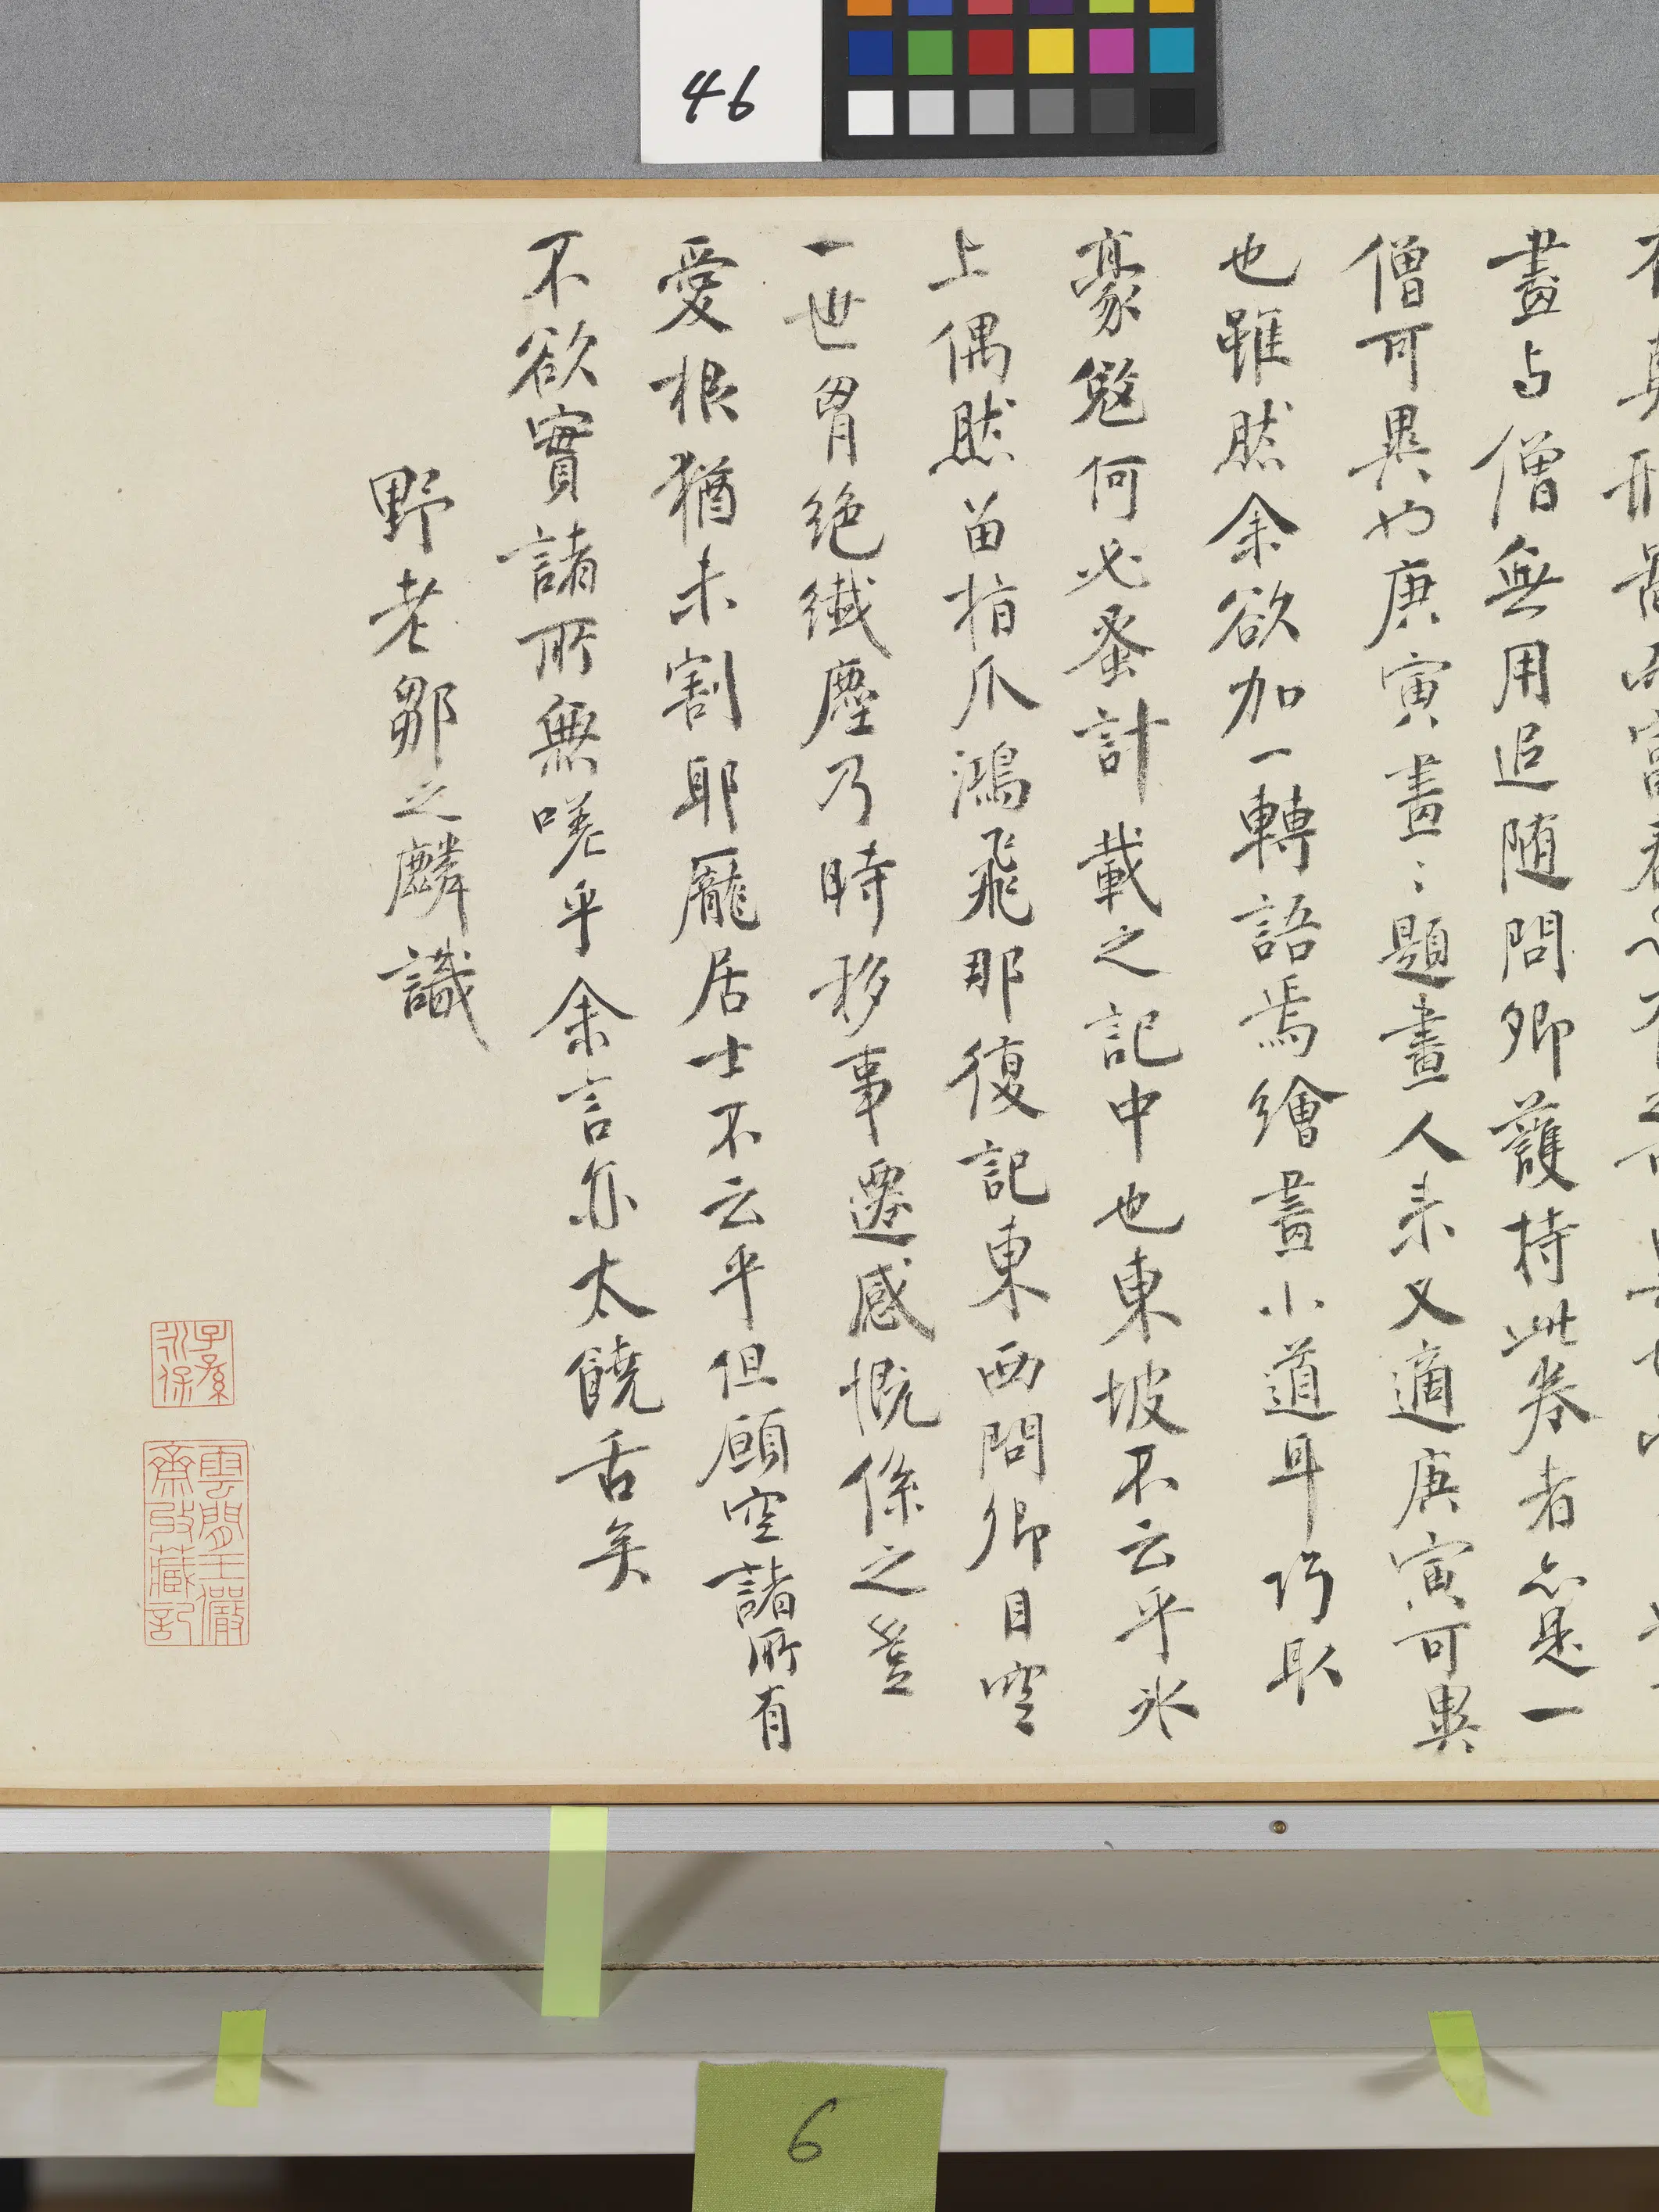 46
畫与僧無用追随問卿護持此卷者亦是一
僧可異也庚寅畫〻題畫人来又適庚寅可異
也雖然余欲加一轉語焉繪畫小道耳巧取
豪奪何必蚤計載之記中也東坡不云乎氷
上偶然留指爪鴻飛那復記東西問卿目空
一世胷絶纎塵乃時移事遷感慨係之豈
愛根猶未割耶龐居士不云乎但願空諸所有
不欲實諸所無嗟乎余言亦太饒舌矣
野老鄒之麟識
子孫永保
雲間王儼齋收藏記
6